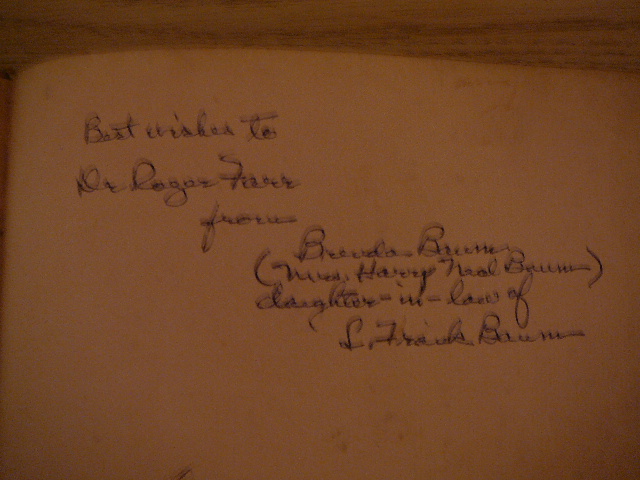 Best wishes to
Dr Roger Farr
from
Brenda Baum
(Mrs. Harry Neal Baum)
daughter-in-law of
L. Frank Baum